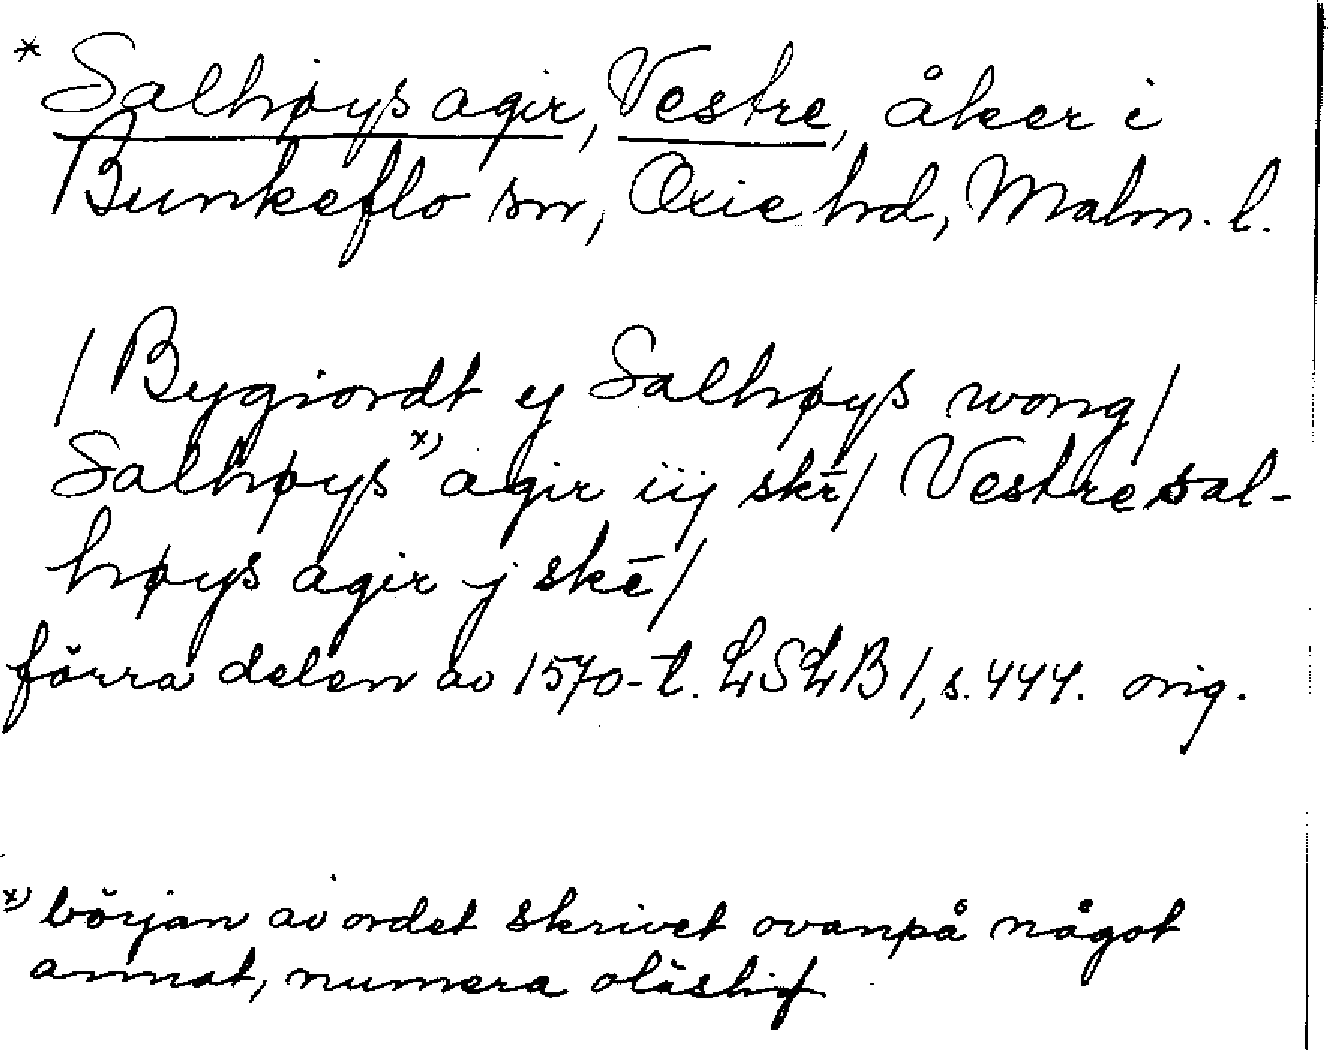 * Salhøys agir, Vestre, åker i
Bunkeflo sn, Oxie hd, Malm. l.
/ Bygiordt ÿ Salhøys wong/
Salhøys *) agir iij skr̄/ Vestre sal-
høys agir j skē/
förra delen av 1570-t. LSLB 1, s. 444. orig.
*) början av ordet skrivet ovanpå något
annat, numera oläsligt